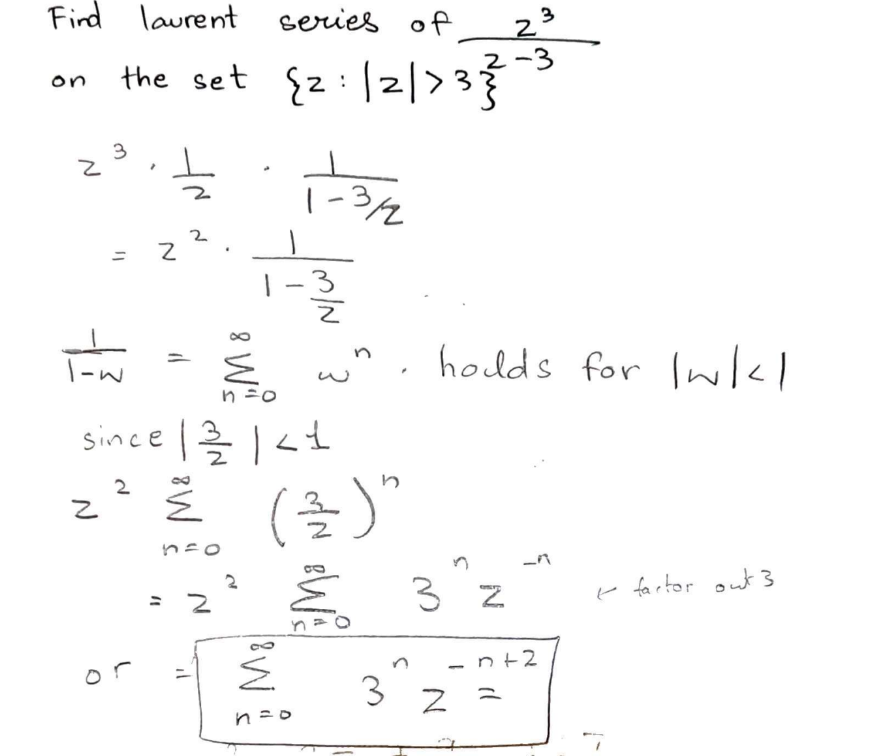 Find laurent series of z³/(z-3)
on the set {z : |z| > 3}
z³ · 1/z · 1/(1 - 3/z)
= z² · 1/(1 - 3/z)
1/(1-w) = ∑_{n=0}^{∞} w^n . holds for |w|<1
since |3/z| < 1
z² ∑_{n=0}^{∞} (3/z)^n
= z² ∑_{n=0}^{∞} 3^n z^{-n} ← factor out 3
or = ∑_{n=0}^{∞} 3^n z^{-n+2} =